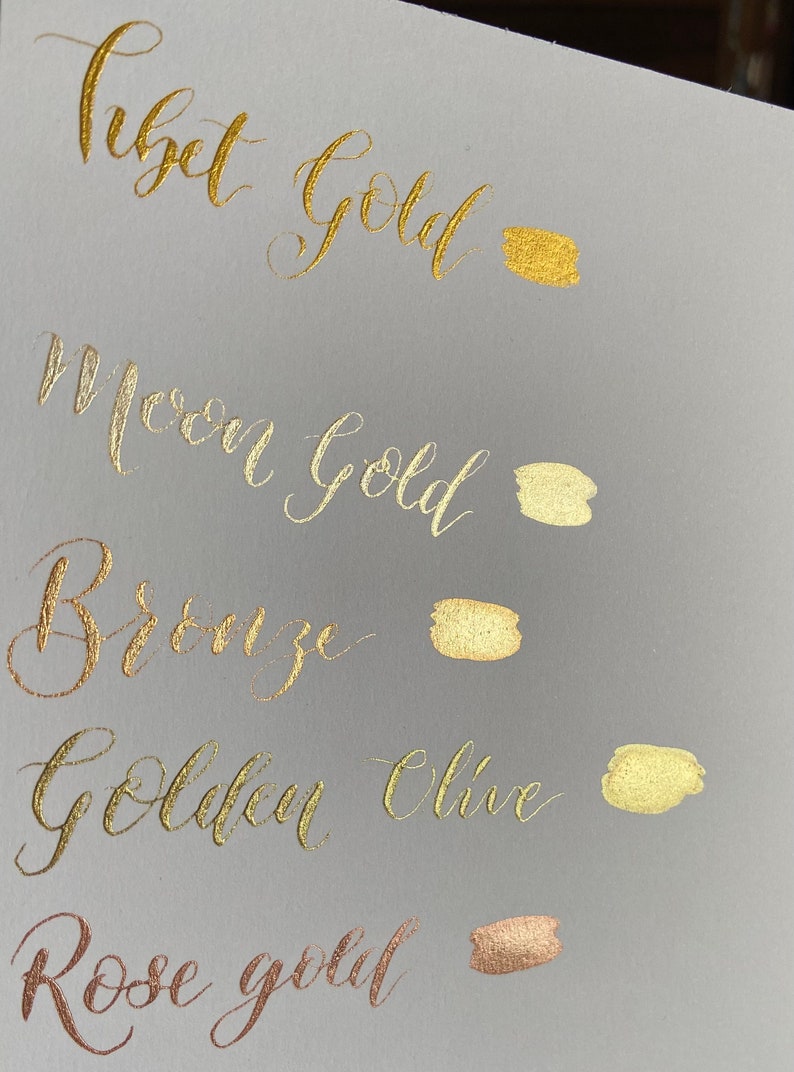 Tibet Gold
Moon Gold
Bronze
Golden Olive
Rose gold